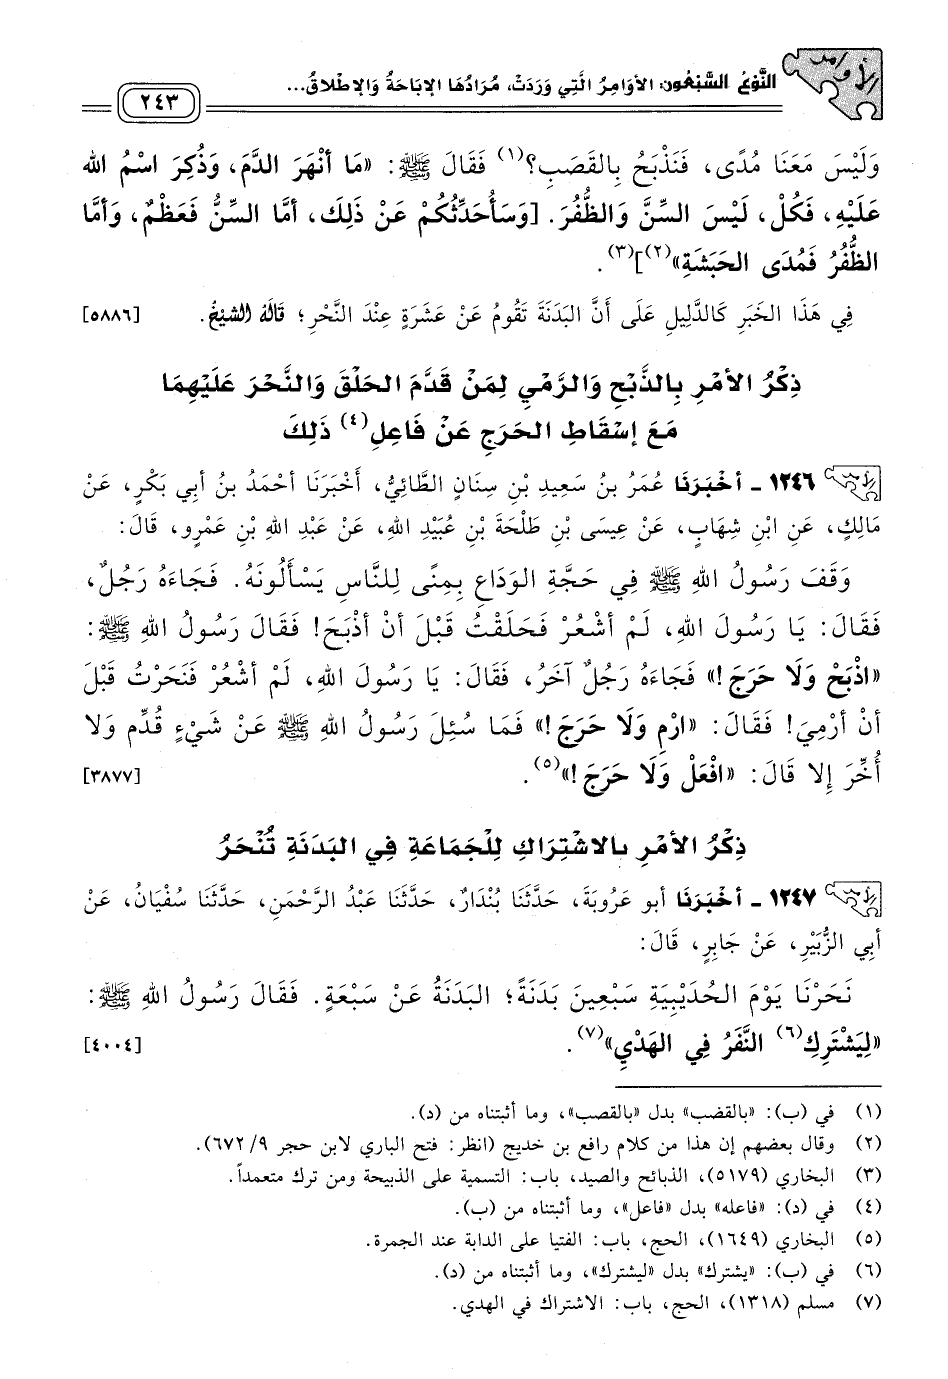 الأوامر
النَّوْعُ السَّبْعُون: الأَوَامِرُ الَّتِي وَرَدَتْ، مُرَادُهَا الإِبَاحَةُ وَالإِطْلاقُ...
٢٤٣
وَلَيْسَ مَعَنَا مُدًى، فَنَذْبَحُ بِالقَصَبِ؟(١) فَقَالَ ﷺ: «مَا أَنْهَرَ الدَّمَ، وَذُكِرَ اسْمُ اللهِ
عَلَيْهِ، فَكُلْ، لَيْسَ السِّنَّ وَالظُّفُرَ. [وَسَأُحَدِّثُكُمْ عَنْ ذَلِكَ، أَمَّا السِّنُّ فَعَظْمٌ، وَأَمَّا
الظُّفُرُ فَمُدَى الحَبَشَةِ»(٢)](٣).
فِي هَذَا الخَبَرِ كَالدَّلِيلِ عَلَى أَنَّ البَدَنَةَ تَقُومُ عَنْ عَشَرَةٍ عِنْدَ النَّحْرِ؛ قَالَهُ الشَّيْخُ. [٥٨٨٦]
ذِكْرُ الأَمْرِ بِالذَّبْحِ وَالرَّمْيِ لِمَنْ قَدَّمَ الحَلْقَ وَالنَّحْرَ عَلَيْهِمَا
مَعَ إِسْقَاطِ الحَرَجِ عَنْ فَاعِلِ(٤) ذَلِكَ
١٢٤٦ - أَخْبَرَنَا عُمَرُ بنُ سَعِيدِ بْنِ سِنَانٍ الطَّائِيُّ، أَخْبَرَنَا أَحْمَدُ بنُ أَبِي بَكْرٍ، عَنْ
مَالِكٍ، عَنِ ابْنِ شِهَابٍ، عَنْ عِيسَى بْنِ طَلْحَةَ بْنِ عُبَيْدِ اللهِ، عَنْ عَبْدِ اللهِ بْنِ عَمْرٍو، قَالَ:
وَقَفَ رَسُولُ اللهِ ﷺ فِي حَجَّةِ الوَدَاعِ بِمِنًى لِلنَّاسِ يَسْأَلُونَهُ. فَجَاءَهُ رَجُلٌ،
فَقَالَ: يَا رَسُولَ اللهِ، لَمْ أَشْعُرْ فَحَلَقْتُ قَبْلَ أَنْ أَذْبَحَ! فَقَالَ رَسُولُ اللهِ ﷺ:
«اذْبَحْ وَلَا حَرَجَ!» فَجَاءَهُ رَجُلٌ آخَرُ، فَقَالَ: يَا رَسُولَ اللهِ، لَمْ أَشْعُرْ فَنَحَرْتُ قَبْلَ
أَنْ أَرْمِيَ! فَقَالَ: «ارْمِ وَلَا حَرَجَ!» فَمَا سُئِلَ رَسُولُ اللهِ ﷺ عَنْ شَيْءٍ قُدِّمَ وَلَا
أُخِّرَ إِلا قَالَ: «افْعَلْ وَلَا حَرَجَ!»(٥). [٣٨٧٧]
ذِكْرُ الأَمْرِ بِالاشْتِرَاكِ لِلْجَمَاعَةِ فِي البَدَنَةِ تُنْحَرُ
١٢٤٧ - أَخْبَرَنَا أَبُو عَرُوبَةَ، حَدَّثَنَا بُنْدَارٌ، حَدَّثَنَا عَبْدُ الرَّحْمَنِ، حَدَّثَنَا سُفْيَانُ، عَنْ
أَبِي الزُّبَيْرِ، عَنْ جَابِرٍ، قَالَ:
نَحَرْنَا يَوْمَ الحُدَيْبِيَةِ سَبْعِينَ بَدَنَةً؛ البَدَنَةُ عَنْ سَبْعَةٍ. فَقَالَ رَسُولُ اللهِ ﷺ:
«لِيَشْتَرِكِ(٦) النَّفَرُ فِي الهَدْيِ»(٧). [٤٠٠٤]
(١) في (ب): «بالقضب» بدل «بالقصب»، وما أثبتناه من (د).
(٢) وقال بعضهم إن هذا من كلام رافع بن خديج (انظر: فتح الباري لابن حجر ٩/ ٦٧٢).
(٣) البخاري (٥١٧٩)، الذبائح والصيد، باب: التسمية على الذبيحة ومن ترك متعمداً.
(٤) في (د): «فاعله» بدل «فاعل»، وما أثبتناه من (ب).
(٥) البخاري (١٦٤٩)، الحج، باب: الفتيا على الدابة عند الجمرة.
(٦) في (ب): «يشترك» بدل «ليشترك»، وما أثبتناه من (د).
(٧) مسلم (١٣١٨)، الحج، باب: الاشتراك في الهدي.